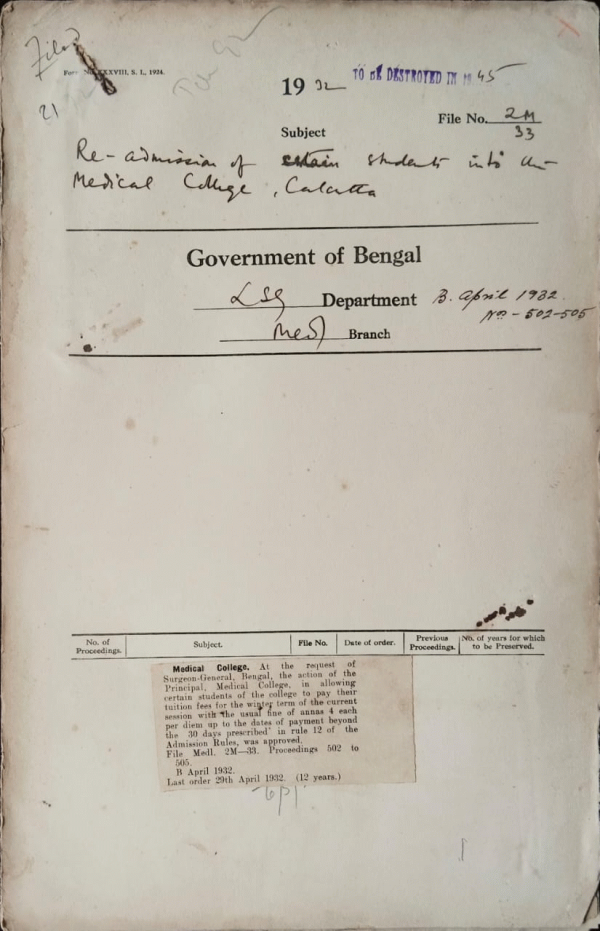 Filed
Form No. XXXVIII, S. I., 1924.
21
1932 TO BE DESTROYED IN 1945
File No. 2M/33
Subject
Re-admission of certain students into the
Medical College, Calcutta
Government of Bengal
LSG Department B. April 1932.
Nos - 502-505
Medl Branch
No. of Proceedings. Subject. File No. Date of order. Previous Proceedings. No. of years for which to be Preserved.
Medical College. At the request of
Surgeon-General, Bengal, the action of the
Principal, Medical College, in allowing
certain students of the college to pay their
tuition fees for the winter term of the current
session with the usual fine of annas 4 each
per diem up to the dates of payment beyond
the 30 days prescribed in rule 12 of the
Admission Rules, was approved.
File Medl. 2M—33. Proceedings 502 to
505.
B April 1932.
Last order 29th April 1932. (12 years.)